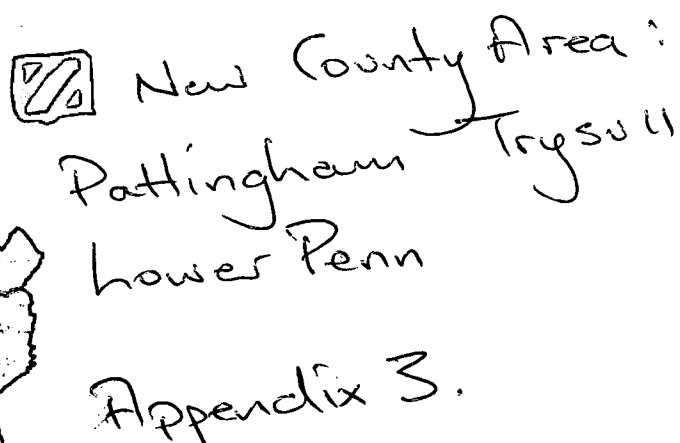 New County Area :
Pattingham Trysull
Lower Penn
Appendix 3.